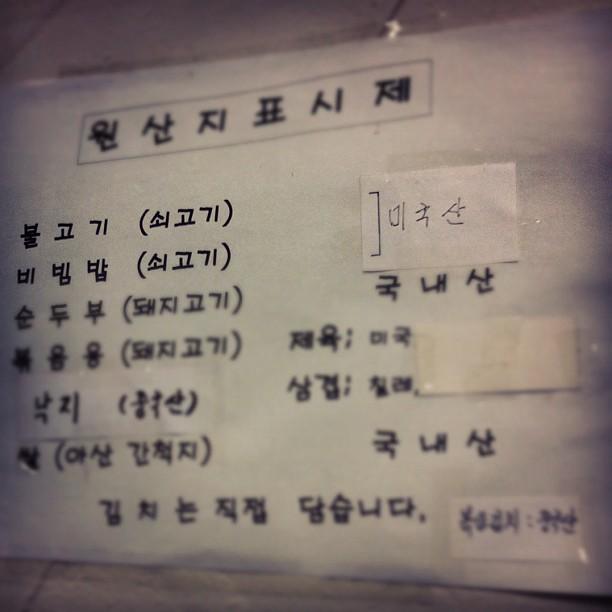 원산지표시제
불고기 (쇠고기) ] 미국산
비빔밥 (쇠고기)
순두부 (돼지고기) 국내산
볶음용 (돼지고기) 제육; 미국
삼겹; 칠레,
낙지 (중국산)
쌀 (아산 간척지) 국내산
김치는 직접 담습니다.
볶음김치 : 중국산